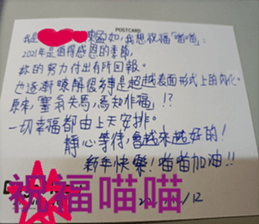 POSTCARD
我是 樂 如,我想祝福「喵喵」:
2021年是值得感恩的季節,
妳的努力付出有所回報。
也逐漸瞭解很多事是超越表面形式上的
原來「塞翁失馬,焉知非福」!?
一切幸福都由上天安排。
靜心等待,會越來越好的!
新年快樂!喵喵加油!!
祝福喵喵
12